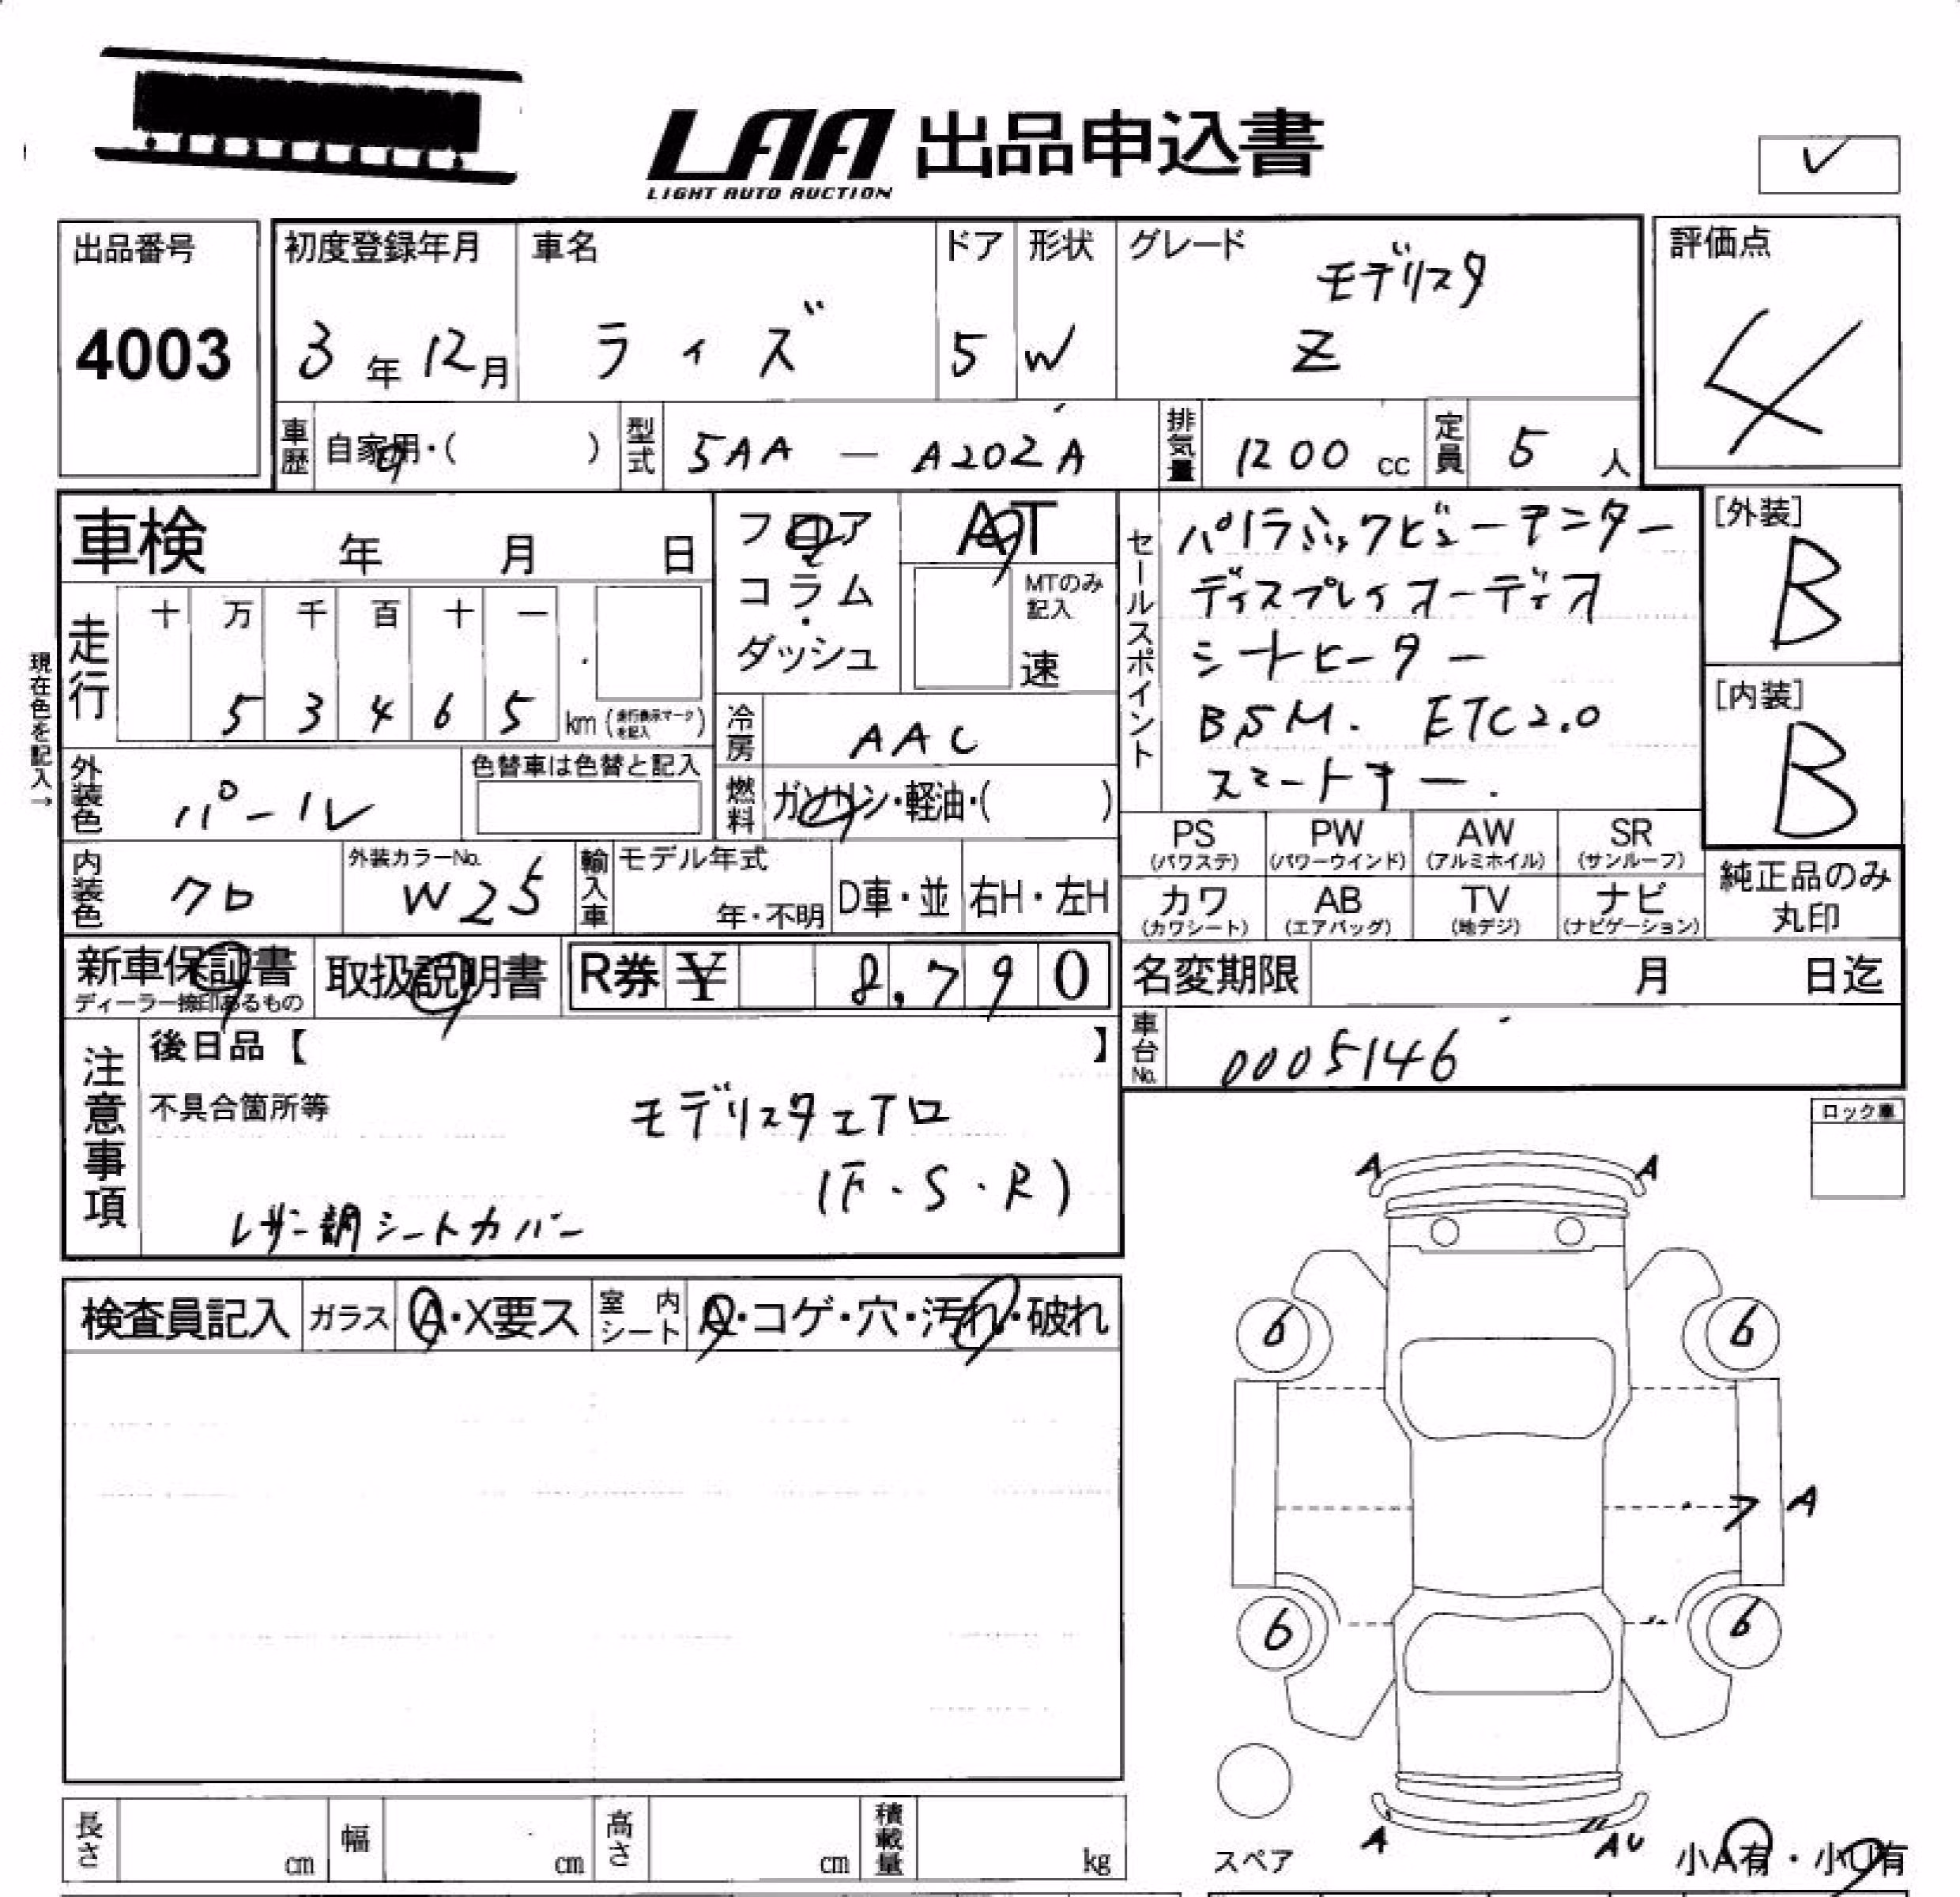 LAA 出品申込書
LIGHT AUTO AUCTION
出品番号
4003
初度登録年月
3年12月
車名
ライズ
ドア
5
形状
W
グレード
モデリスタ
Z
評価点
4
車歴
自家用・( )
型式
5AA — A202A
排気量
1200 cc
定員
5 人
車検 年 月 日
フロア
コラム
・
ダッシュ
AT
MTのみ
記入
速
セールスポイント
パノラミックビューモニター
ディスプレイオーディオ
シートヒーター
BSM. ETC2.0
スマートキー.
[外装]
B
[内装]
B
現在色を記入→
走行
十 万 千 百 十 一
5 3 4 6 5
km (走行表示マークを記入)
冷房
AAC
燃料
ガソリン・軽油・( )
外装色
パール
色替車は色替と記入
内装色
クロ
外装カラーNo.
W25
輸入車
モデル年式
年・不明
D車・並
右H・左H
PS
(パワステ)
PW
(パワーウインド)
AW
(アルミホイル)
SR
(サンルーフ)
カワ
(カワシート)
AB
(エアバッグ)
TV
(地デジ)
ナビ
(ナビゲーション)
純正品のみ
丸印
新車保証書
ディーラー捺印あるもの
取扱説明書
R券 ¥ 8,790
名変期限 月 日迄
車台No.
0005146
注意事項
後日品【 】
不具合箇所等
モデリスタエアロ
(F・S・R)
レザー調シートカバー
ロック車
検査員記入
ガラス
A・X要ス
室内シート
A・コゲ・穴・汚れ・破れ
A A
6 6
ア A
6 6
A AU
スペア
小A有・小U有
長さ cm
幅 cm
高さ cm
積載量 kg